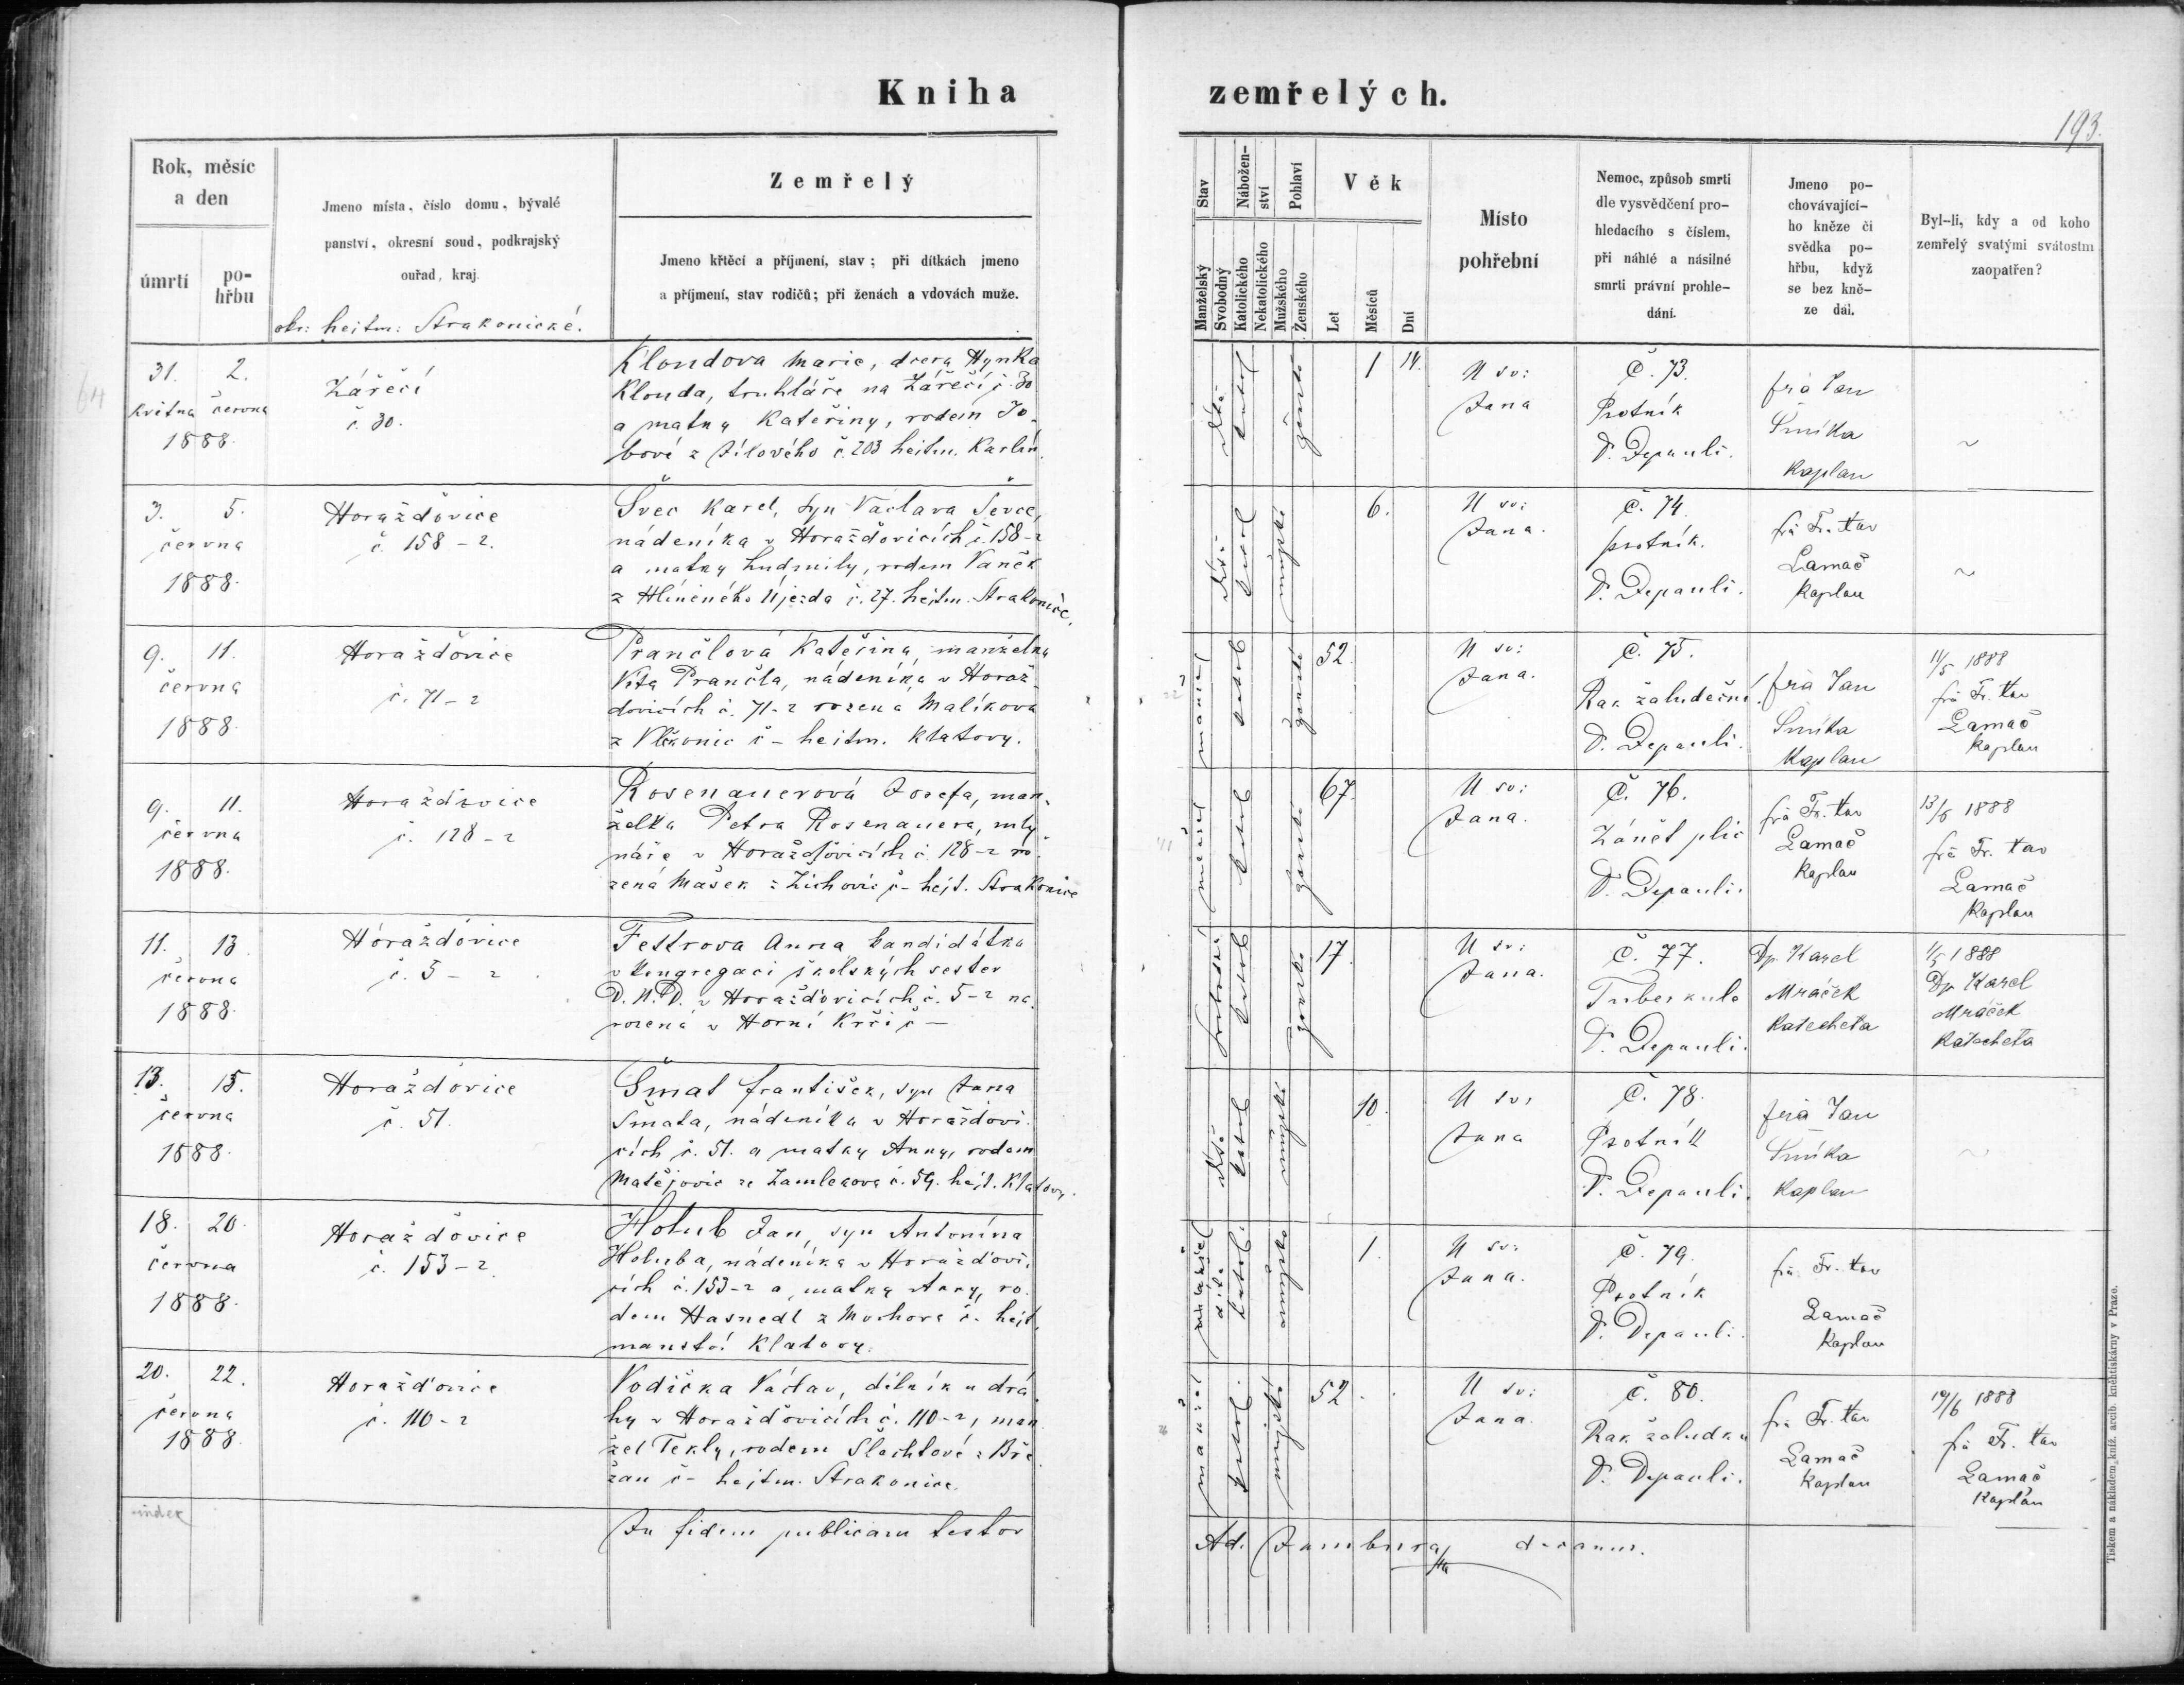 Kniha zemřelých.
193.
Rok, měsíc
a den
úmrtí
po-
hřbu
Jmeno místa, číslo domu, bývalé
panství, okresní soud, podkrajský
ouřad, kraj.
okr: hejtm: Strakonické.
Zemřelý
Jmeno křtěcí a příjmení, stav; při dítkách jmeno
a příjmení, stav rodičů; při ženách a vdovách muže.
Stav
Manželský
Svobodný
Nábožen-
ství
Katolického
Nekatolického
Pohlaví
Mužského
Ženského
Věk
Let
Měsíců
Dní
Místo
pohřební
Nemoc, způsob smrti
dle vysvědčení pro-
hledacího s číslem,
při náhlé a násilné
smrti právní prohle-
dání.
Jmeno po-
chovávající-
ho kněze či
svědka po-
hřbu, když
se bez kně-
ze dál.
Byl-li, kdy a od koho
zemřelý svatými svátostmi
zaopatřen?
64
31. 2.
května června
1888.
Zářečí
č. 30.
Kloudova Marie, dcera Hynka
Klouda, truhláře na Zářečí č. 30
a matky Kateřiny, rodem Jo-
bové z Žílového č. 203 hejtm. Karlín.
dítě
katol
ženské
1 14.
U sv:
Jana
Č. 73.
Psotník
D. Depauli.
fra Jan
Smíka
Kaplan
~
3. 5.
června
1888.
Horažďovice
č. 158-2.
Švec Karel, syn Václava Ševce,
nádeníka v Horažďovicích č. 158-2
a matky Ludmily, rodem Vaněk
z Hliněného Újezda č. 27. hejtm. Strakonice.
dítě
katol
mužské
6.
U sv:
Jana.
Č. 74.
psotník.
D. Depauli.
fra Fr. Xav
Lamač
Kaplan
~
9. 11.
června
1888.
Horažďovice
č. 71-2
Prančlová Kateřina, manželka
Víta Prančla, nádeníka v Horaž-
ďovicích č. 71-2 rozená Malíkova
z Vlčkonic č - hejtm. Klatovy.
manžel
katol
ženské
52.
U sv:
Jana.
Č. 75.
Rak žaludeční.
D. Depauli.
fra Jan
Smíka
Kaplan
11/5 1888
fra Fr. Xav
Lamač
Kaplan
9. 11.
června
1888.
Horažďovice
č. 128-2
Rosenauerová Josefa, man-
želka Petra Rosenauera, mly-
náře v Horažďovicích č. 128-2 ro-
zená Mašek z Žichovic č - hejt. Strakonice
manžel
katol
ženské
67.
U sv:
Jana.
Č. 76.
Zánět plic
D. Depauli.
fra Fr. Xav
Lamač
Kaplan
13/5 1888
fra Fr. Xav
Lamač
Kaplan
11. 13.
června
1888.
Horažďovice
č. 5-2.
Festrova Anna kandidátka
v kongregaci školských sester
D. N. D. v Horažďovicích č. 5-2 na-
rozená v Horní Krči č -
svobodná
katol
ženské
17.
U sv:
Jana.
Č. 77.
Tuberkule
D. Depauli.
Dp. Karel
Mráček
Katecheta
1/5 1888
Dp Karel
Mráček
Katecheta
13. 15.
června
1888.
Horažďovice
č. 51.
Šmat František, syn Jana
Šmata, nádeníka v Horažďovi-
cích č. 51. a matky Anny, rodem
Matějovic ze Zamlekova č. 59. hejt. Klatovy.
dítě
katol
mužské
10.
U sv:
Jana
Č. 78.
Psotník
D. Depauli.
fra Jan
Smíka
Kaplan
~
18. 20.
června
1888.
Horažďovice
č. 153-2.
Holub Jan, syn Antonína
Holuba, nádeníka v Horažďovi-
cích č. 153-2 a matky Anny, ro-
dem Hasnedl z Mochova č. hejt-
manství Klatovy.
manžel
dítě
katol.
mužské
1.
U sv:
Jana.
Č. 79.
Psotník
D. Depauli.
fra. Fr. Xav
Lamač
Kaplan
20. 22.
června
1888.
Horažďovice
č. 110-2
Vodička Václav, dělník u drá-
hy v Horažďovicích č. 110-2, man-
žel Tekly, rodem Šlechtové z Bře-
žan č - hejtm. Strakonice.
manžel
katol.
mužské
52.
U sv:
Jana.
Č. 80.
Rak žaludku
D. Depauli.
fra Fr. Xav
Lamač
Kaplan
19/6 1888
fra Fr. Xav
Lamač
Kaplan
index
In fidem publicam testor
Ad. Jambura decanus.
Tiskem a nákladem kníž. arcib. kněhtiskárny v Praze.